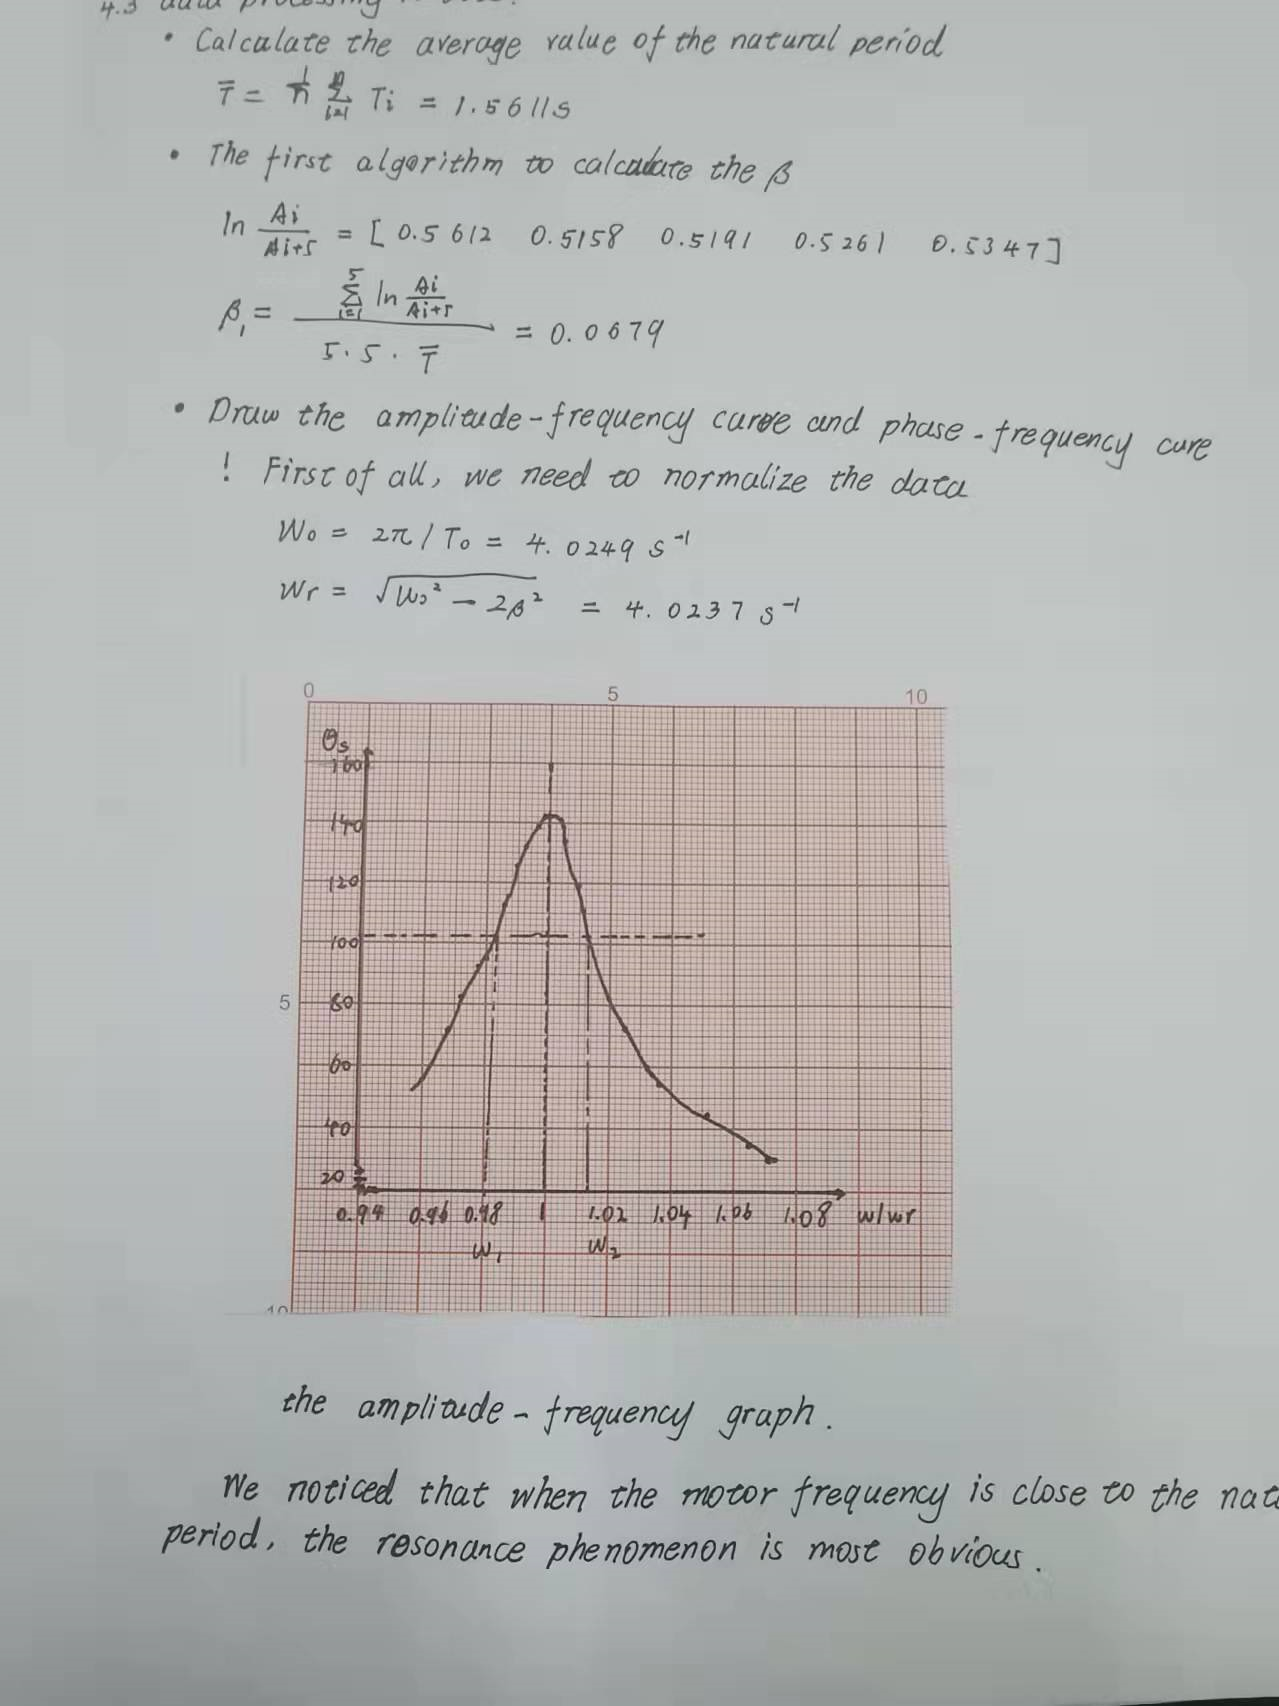 4.3 data processing
• Calculate the average value of the natural period
T̄ = 1/n Σ_{i=1}^{n} Ti = 1.5611s
• The first algorithm to calculate the β
ln Ai/Ai+5 = [ 0.5612 0.5158 0.5191 0.5261 0.5347 ]
β₁ = Σ_{i=1}^{5} ln Ai/Ai+5 / 5 · 5 · T̄ = 0.0679
• Draw the amplitude-frequency curve and phase-frequency cure
! First of all, we need to normalize the data
W₀ = 2π / T₀ = 4.0249 s⁻¹
Wr = √W₀² - 2β² = 4.0237 s⁻¹
0 5 10
θs
160
140
120
100
5 80
60
40
20
0.94 0.96 0.98 1 1.02 1.04 1.06 1.08 w/wr
W₁ W₂
10
the amplitude - frequency graph.
We noticed that when the motor frequency is close to the nat
period, the resonance phenomenon is most obvious.